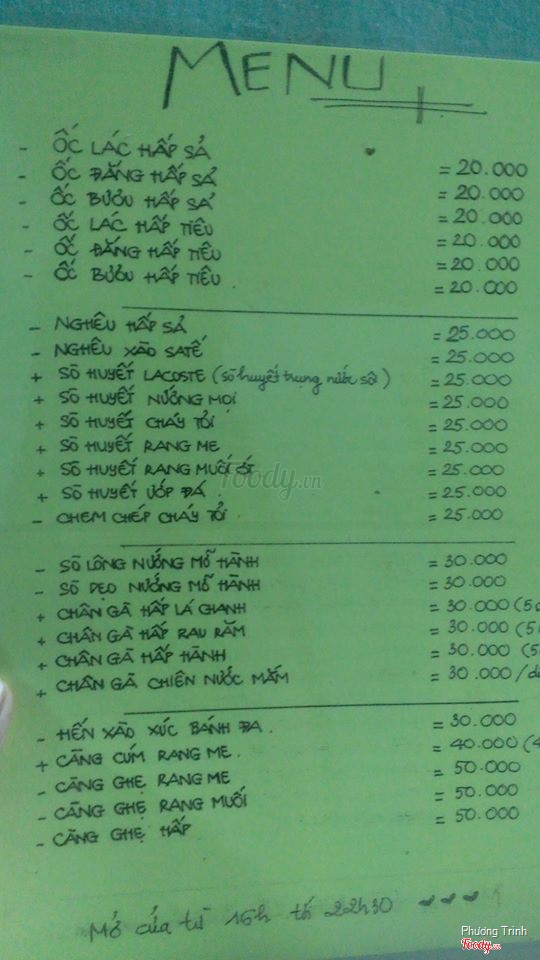 MENU
- ỐC LÁC HẤP SẢ = 20.000
- ỐC ĐẮNG HẤP SẢ = 20.000
- ỐC BƯƠU HẤP SẢ = 20.000
- ỐC LÁC HẤP TIÊU = 20.000
- ỐC ĐẮNG HẤP TIÊU = 20.000
- ỐC BƯƠU HẤP TIÊU = 20.000
- NGHÊU HẤP SẢ = 25.000
- NGHÊU XÀO SATẾ = 25.000
+ SÒ HUYẾT LACOSTE (sò huyết trụng nước sôi) = 25.000
+ SÒ HUYẾT NƯỚNG MỌI = 25.000
+ SÒ HUYẾT CHÁY TỎI = 25.000
+ SÒ HUYẾT RANG ME = 25.000
+ SÒ HUYẾT RANG MUỐI ỚT = 25.000
+ SÒ HUYẾT ƯỚP ĐÁ = 25.000
- CHEM CHÉP CHÁY TỎI = 25.000
- SÒ LÔNG NƯỚNG MỠ HÀNH = 30.000
- SÒ DẸO NƯỚNG MỠ HÀNH = 30.000
+ CHÂN GÀ HẤP LÁ CHANH = 30.000 (5
+ CHÂN GÀ HẤP RAU RĂM = 30.000 (5
+ CHÂN GÀ HẤP HÀNH = 30.000 (5
+ CHÂN GÀ CHIÊN NƯỚC MẮM = 30.000/
- HẾN XÀO XÚC BÁNH ĐA = 30.000
+ CÀNG CÚM RANG ME = 40.000 (4
- CÀNG GHẸ RANG ME = 50.000
- CÀNG GHẸ RANG MUỐI = 50.000
- CÀNG GHẸ HẤP = 50.000
Mở cửa từ 15h tới 22h30
foody.vn
Phương Trinh
Foody.vn